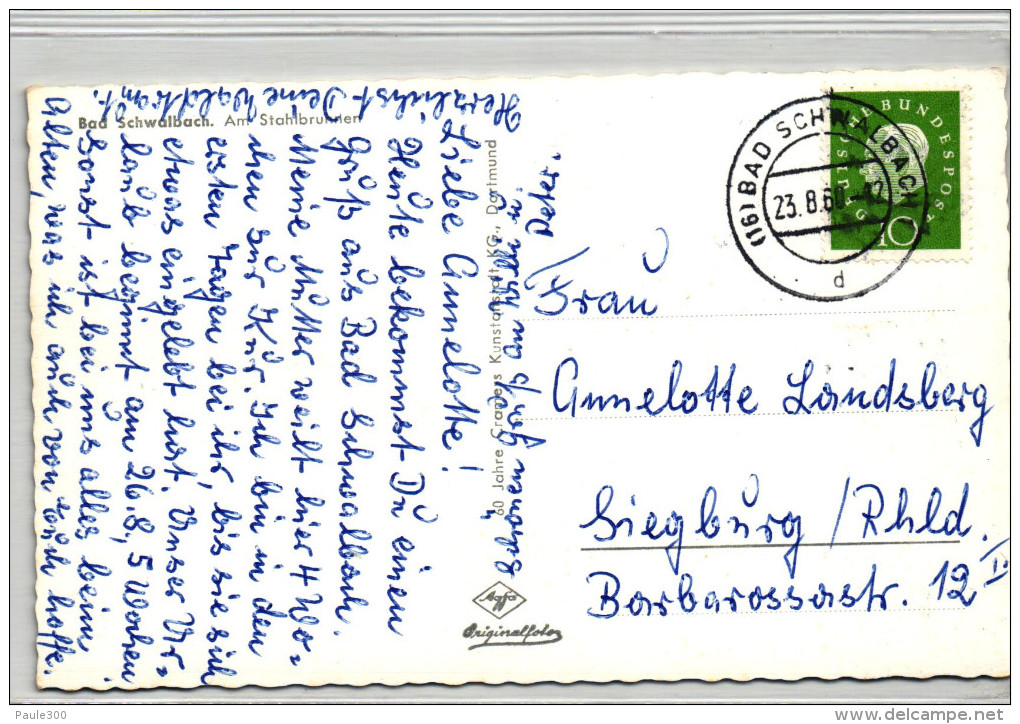 Bad Schwalbach. Am Stahlbrunnen
Liebe Annelotte!
Heute bekommst Du einen
Gruß aus Bad Schwalbach.
Meine Mutter weilt hier 4 Wo-
chen zur Kur. Ich bin in den
ersten Tagen bei ihr, bis sie sich
etwas eingelebt hat. Unser Ur-
laub beginnt am 26.8., 5 Wochen.
Sonst ist bei uns alles beim
Alten, was ich auch von Euch hoffe.
Herzlichst Deine Waldtraut.
Peter.
60 Jahre Cramers Kunstanstalt KG., Dortmund
Agfa
Originalfoto
(16) BAD SCHWALBACH
23.8.60.-12
d
DEUTSCHE BUNDESPOST
10
Frau
Annelotte Landsberg
Siegburg/Rhld.
Barbarossastr. 12 II.
Paule300
delcampe.net